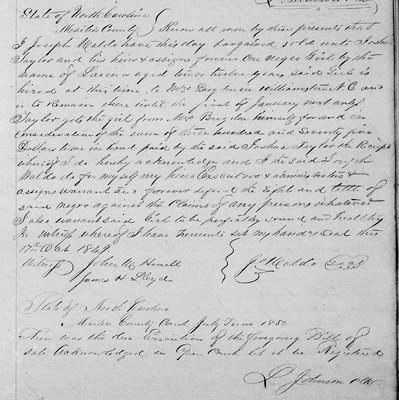 State of North Carolina
Martin County Know all men by these presents that
I Joseph Waldo have this day bargained & sold unto Joshua
Taylor and his heirs & assigns forever One Negro Girl by the
name of aged twelve years said Girl is
hired at this time to Mrs in Williamston N C and
is to Remain there until the first of January next
Taylor gets the girl from Mrs himself for and in
consideration of the sum of three hundred and Seventy five
Dollars to me in hand paid by the said Joshua Taylor the Receipt
whereof I do hereby acknowledge and I the said Joseph
Waldo do for myself my heirs Executors & administrators &
assigns warrant and forever defend the right and title of
said negro against the Claims of any persons whatever
I also warrant said Girl to be perfectly sound and healthy
In witness whereof I have hereunto set my hand & Seal this
17th Oct 1849
Witness John M Howell Jos Waldo Seal
James H Lloyd
State of North Carolina
Martin County Court July Term 1850
Then was the due Execution of the foregoing Bill of
sale Acknowledged in Open Court let it be Registered
L. Johnson Clk